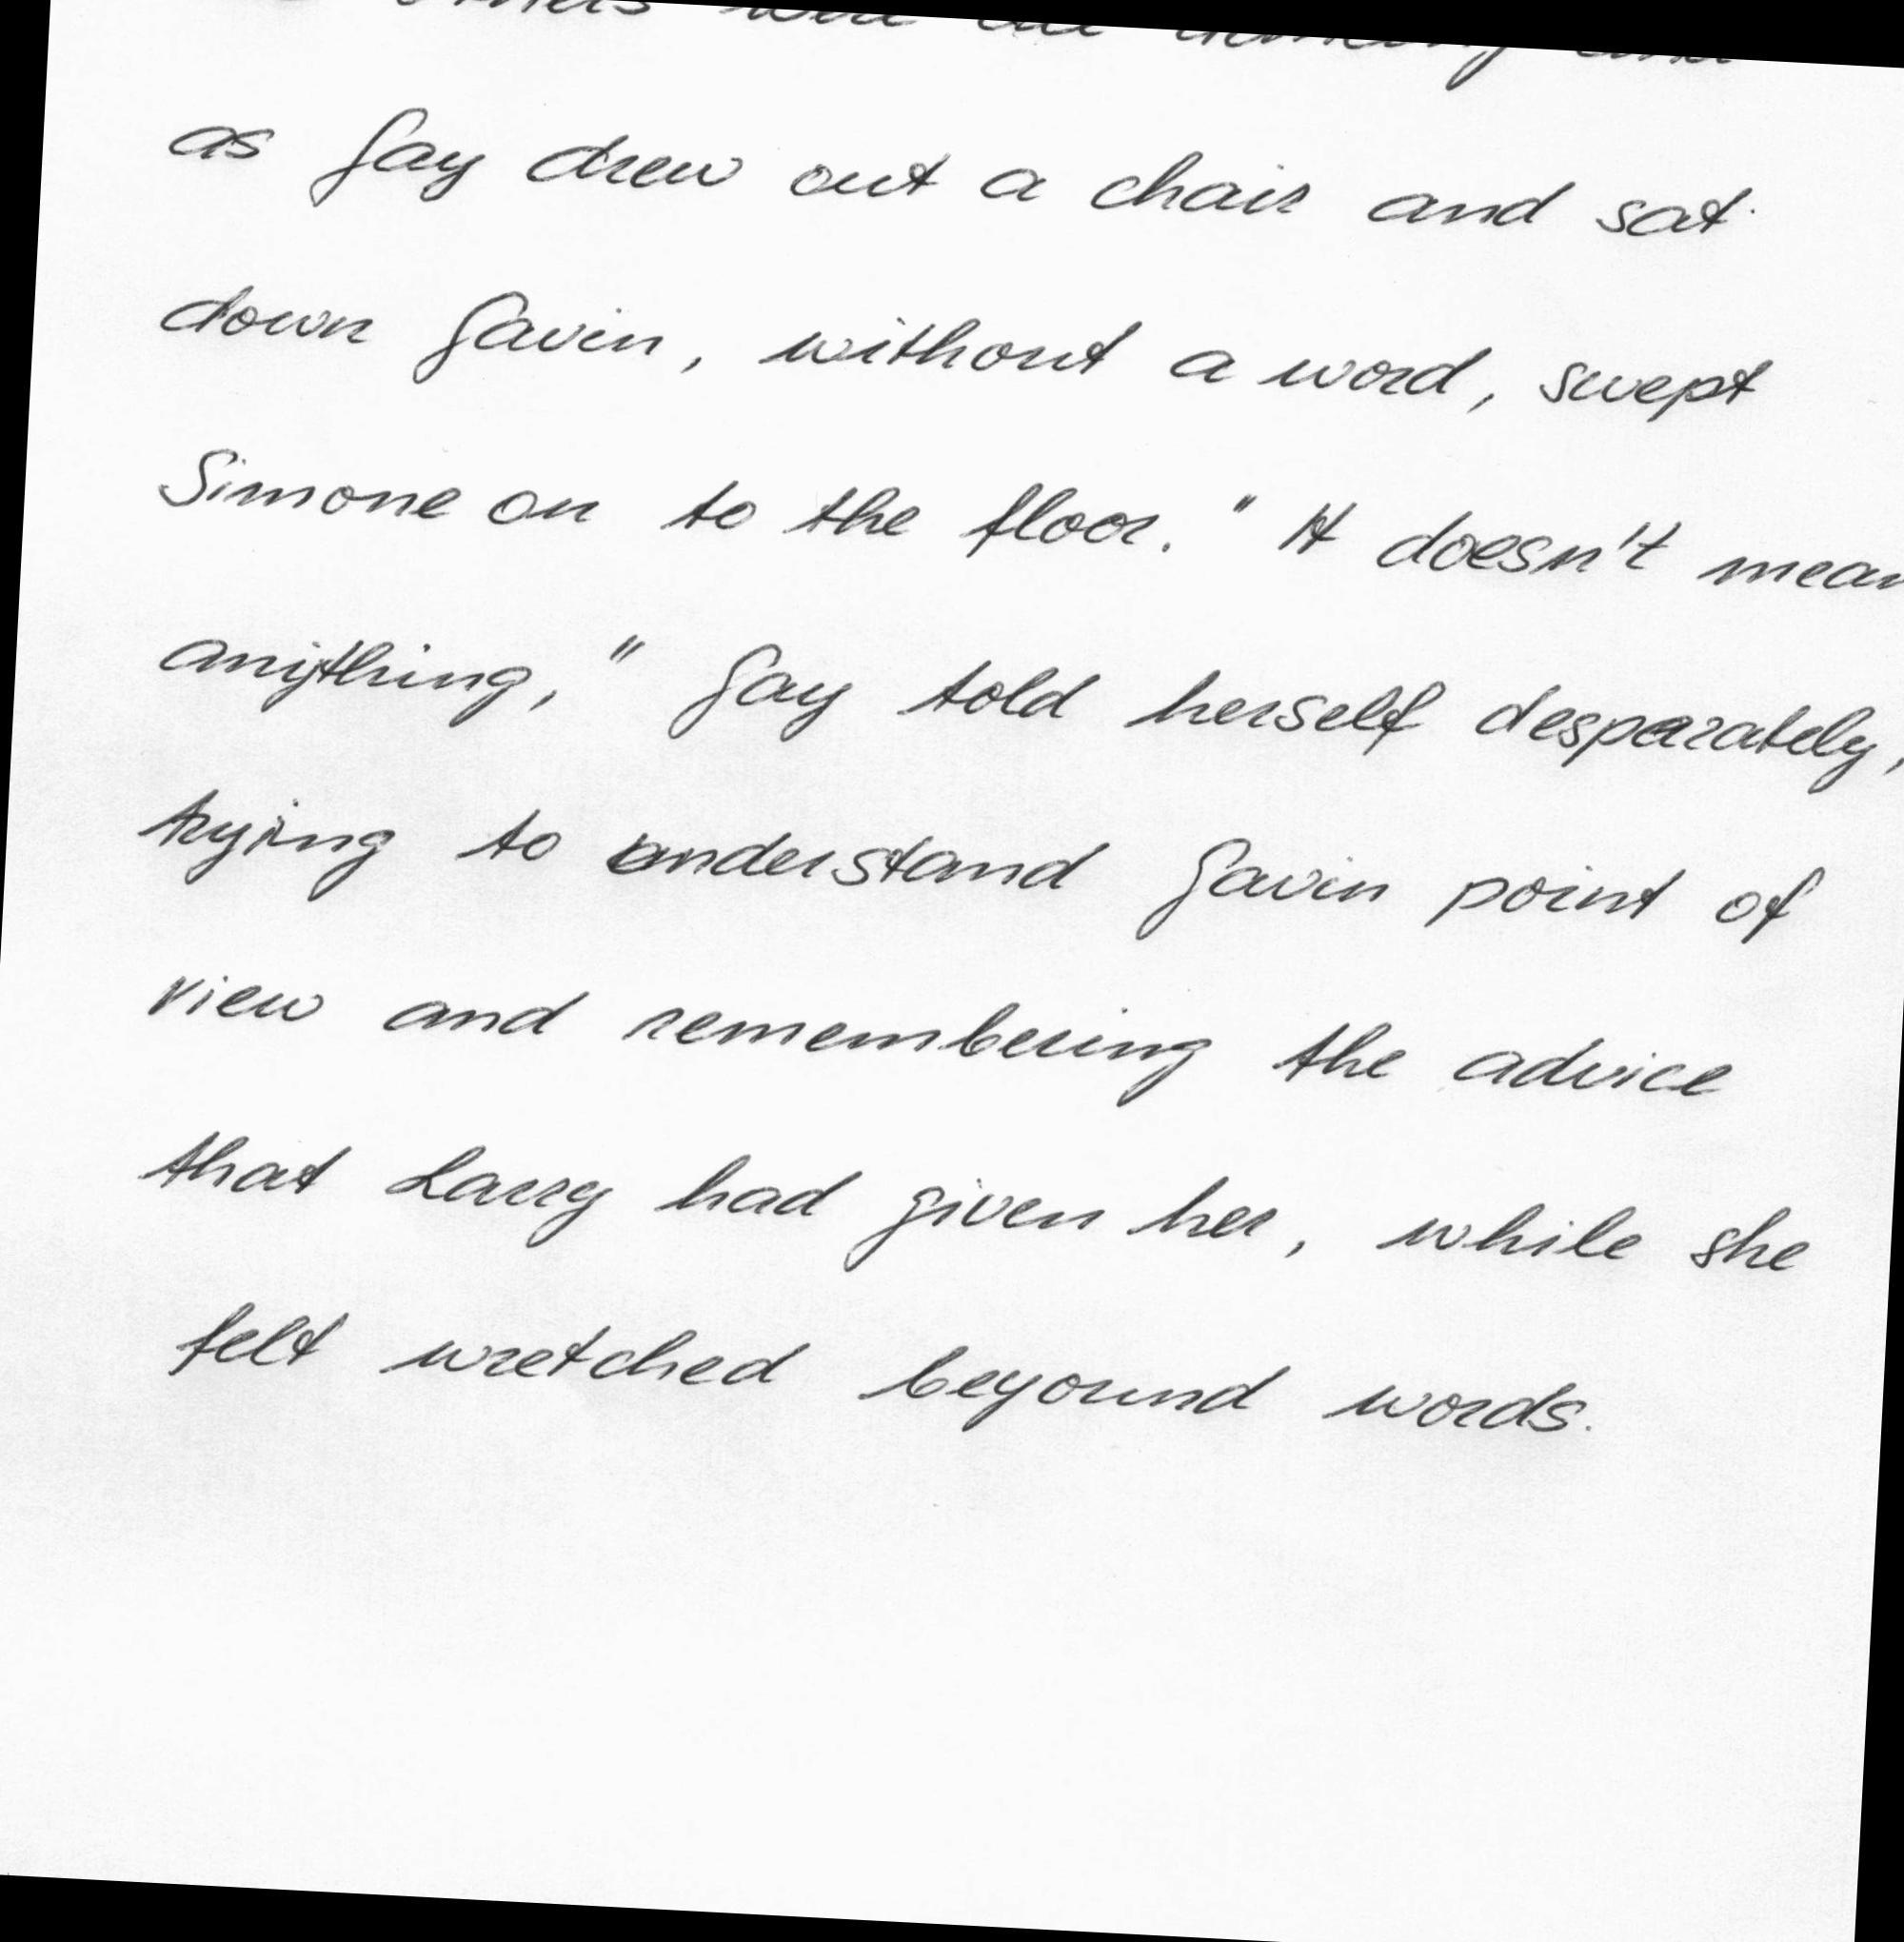 as Gay drew out a chair and sat
down Gavin, without a word, swept
Simone on to the floor. "It doesn't mean
anything," Gay told herself desparately,
trying to understand Gavin point of
view and remembering the advice
that Larry had given her, while she
felt wretched beyound words.